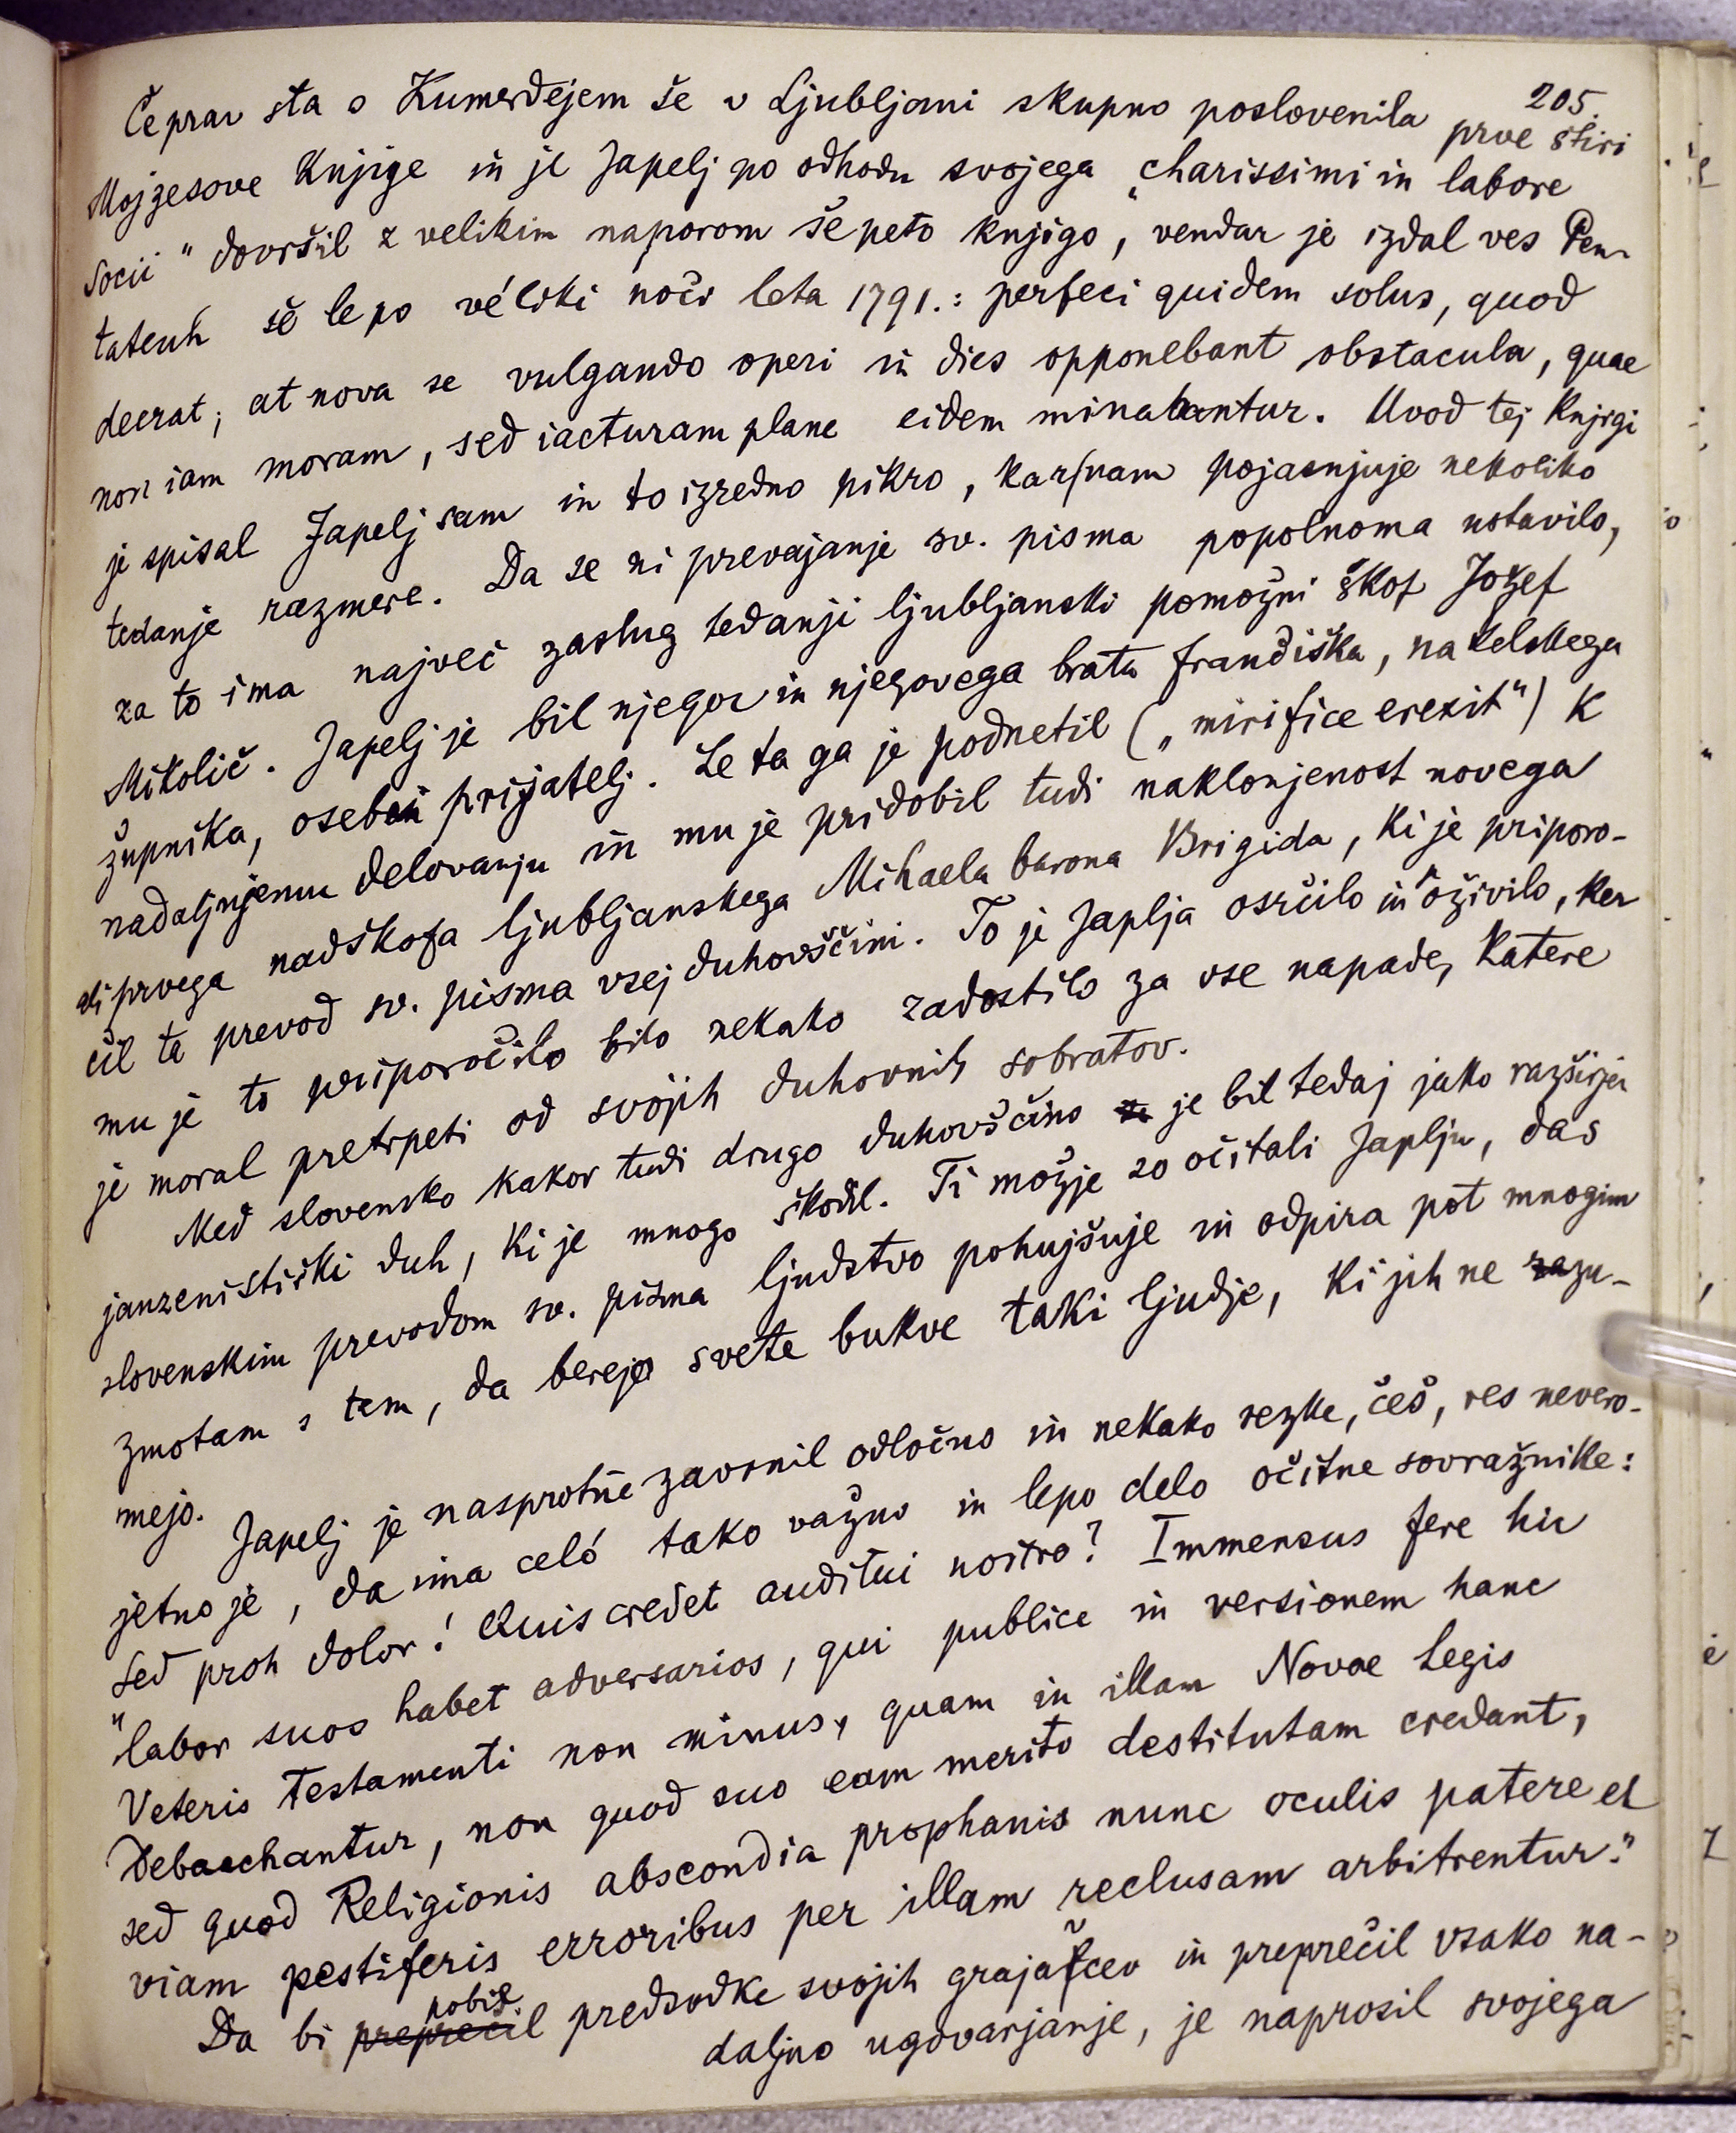 205.
Čeprav sta s Kumerdejem še v Ljubljani skupno poslovenila prve štiri
Mojzesove knjige in je Japelj po odhodu svojega „charissimi in labore
socii" dovršil z velikim naporom še peto knjigo, vendar je izdal ves Pen-
tateuh še le po véliki noči leta 1791.: perfeci quidem solus, quod
deerat; at nova se vulgando operi in dies opponebant obstacula, quae
non iam moram, sed iacturam plane eidem minabantur. Uvod tej knjigi
je spisal Japelj sam in to izredno pikro, kar nam pojasnjuje nekoliko
tedanje razmere. Da se ni prevajanje sv. pisma popolnoma ustavilo,
za to ima največ zaslug tedanji ljubljanski pomožni škof Jožef
Mikolič. Japelj je bil njegov in njegovega brata Frančiška, nakelskega
župnika, osebni prijatelj. Le ta ga je podnetil („mirifice erexit") k
nadaljnjemu delovanju in mu je pridobil tudi naklonjenost novega
ali prvega nadškofa ljubljanskega Mihaela barona Brigida, ki je priporo-
čil ta prevod sv. pisma vsej duhovščini. To je Japlja osrčilo in oživilo, ker
mu je to priporočilo bilo nekako zadostilo za vse napade, katere
je moral pretrpeti od svojih duhovnih sobratov.
Med slovensko kakor tudi drugo duhovščino je bil tedaj jako razširjen
janzenistiški duh, ki je mnogo škodil. Ti možje so očitali Japlju, da s
slovenskim prevodom sv. pisma ljudstvo pohujšuje in odpira pot mnogim
zmotam s tem, da berejo svete bukve taki ljudje, ki jih ne razu-
mejo.
Japelj je nasprotne zavrnil odločno in nekako rezke, češ, res nevero-
jetno je, da ima celó tako važno in lepo delo očitne sovražnike:
„Sed proh dolor! Quis credet auditui nostro? Immensus fere hic
labor suos habet adversarios, qui publice in versionem hanc
Veteris Testamenti non minus, quam in illam Novae Legis
Debacchantur, non quod suo eam merito destitutam credant,
sed quod Religionis abscondia prophanis nunc oculis patere et
viam pestiferis erroribus per illam reclusam arbitrentur."
Da bi preprečil pobil predsodke svojih grajačcev in preprečil vsako na-
daljno ugovarjanje, je naprosil svojega